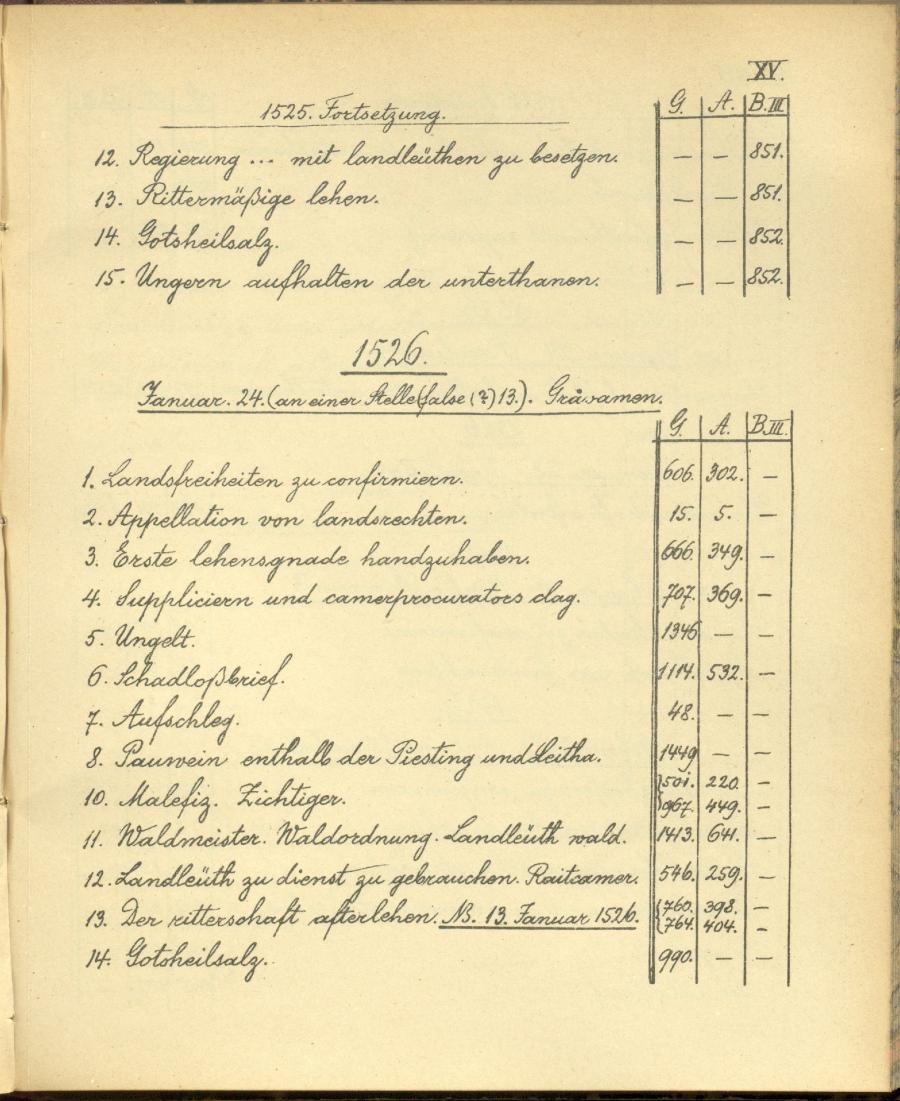 XV.
1525. Fortsetzung. G. A. B.III
12. Regierung ... mit landleüthen zu besetzen. — — 851.
13. Rittermäßige lehen. — — 851.
14. Gotsheilsalz. — — 852.
15. Ungern aufhalten der unterthanen. — — 852.
1526.
Januar. 24. (an einer Stelle (false (?) 13.). Gravamen.
G. A. B.III.
1. Landsfreiheiten zu confirmiern. 606. 302. —
2. Appellation von landsrechten. 15. 5. —
3. Erste lehensgnade handzuhaben. 666. 349. —
4. Suppliciern und camerprocurators clag. 707. 369. —
5. Ungelt. 1346 — —
6. Schadloßbrief. 1114. 532. —
7. Aufschleg. 48. — —
8. Pauwein enthalb der Piesting und Leitha. 1449 — —
10. Malefiz. Zichtiger. {501. 220. —
{967. 449. —
11. Waldmeister. Waldordnung. Landleüth wald. 1413. 641. —
12. Landleüth zu dienst zu gebrauchen. Raitcamer. 546. 259. —
13. Der ritterschaft afterlehen. NB. 13. Januar 1526. {760. 398. —
{764. 404. —
14. Gotsheilsalz. 990. — —